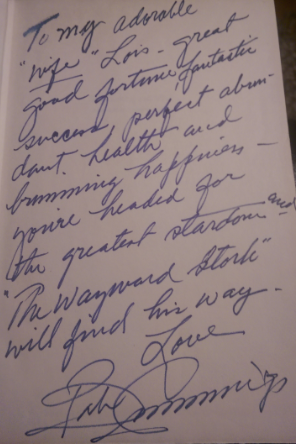 To my adorable
"wife" Lois - great
good fortune, fantastic
success, perfect abun-
dant health and
brimming happiness -
you're headed for
the greatest stardom and
"The Wayward Stork"
will find his way -
Love
Bob Cummings